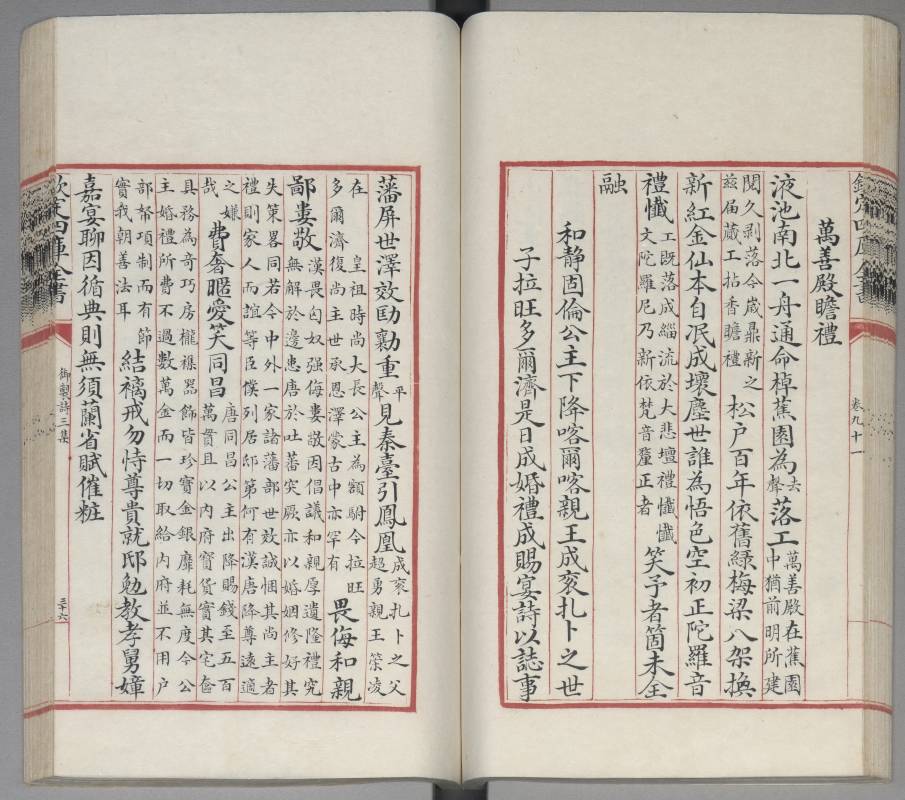 欽定四庫全書
卷九十一
萬善殿瞻禮
液池南北一舟通命棹蕉園為去聲落工萬善殿在蕉園中猶前明所建
閱久剥落今嵗鼎新之茲届蕆工拈香瞻禮松户百年依舊緑梅梁八架換
新紅金仙本自泯成壞塵世誰為悟色空初正陀羅音
禮懺工既落成緇流於大悲壇禮懺懺文陀羅尼乃新依梵音釐正者笑予者箇未全
融
和静固倫公主下降喀爾喀親王成衮扎卜之世
子拉旺多爾濟是日成婚禮成賜宴詩以誌事
藩屏世澤效劻勷重平聲見秦臺引鳳凰成衮扎卜之父超勇親王策凌
在皇祖時尚大長公主為額駙今拉旺多爾濟復尚主世承恩澤蒙古中亦罕有畏侮和親
鄙婁敬漢畏匈奴强侮婁敬因倡議和親厚遺隆禮究無解於邊患唐於吐蕃突厥亦以婚姻修好其
失策畧同若今中外一家諸藩部世效誠悃其尚主者禮則家人而誼等臣僕列居邸第何有漢唐降尊遠適
之嫌哉費奢暱愛笑同昌唐同昌公主出降賜錢至五百萬貫且以内府寶貨實其宅奩
具務為奇巧房櫳襍器飾皆珍寶金銀靡耗無度今公主婚禮所費不過數萬金而一切取給内府並不用户
部帑項制而有節實我朝善法耳結褵戒勿恃尊貴就邸勉教孝舅嫜
嘉宴聊因循典則無須蘭省賦催粧
欽定四庫全書
御製詩三集
三十六